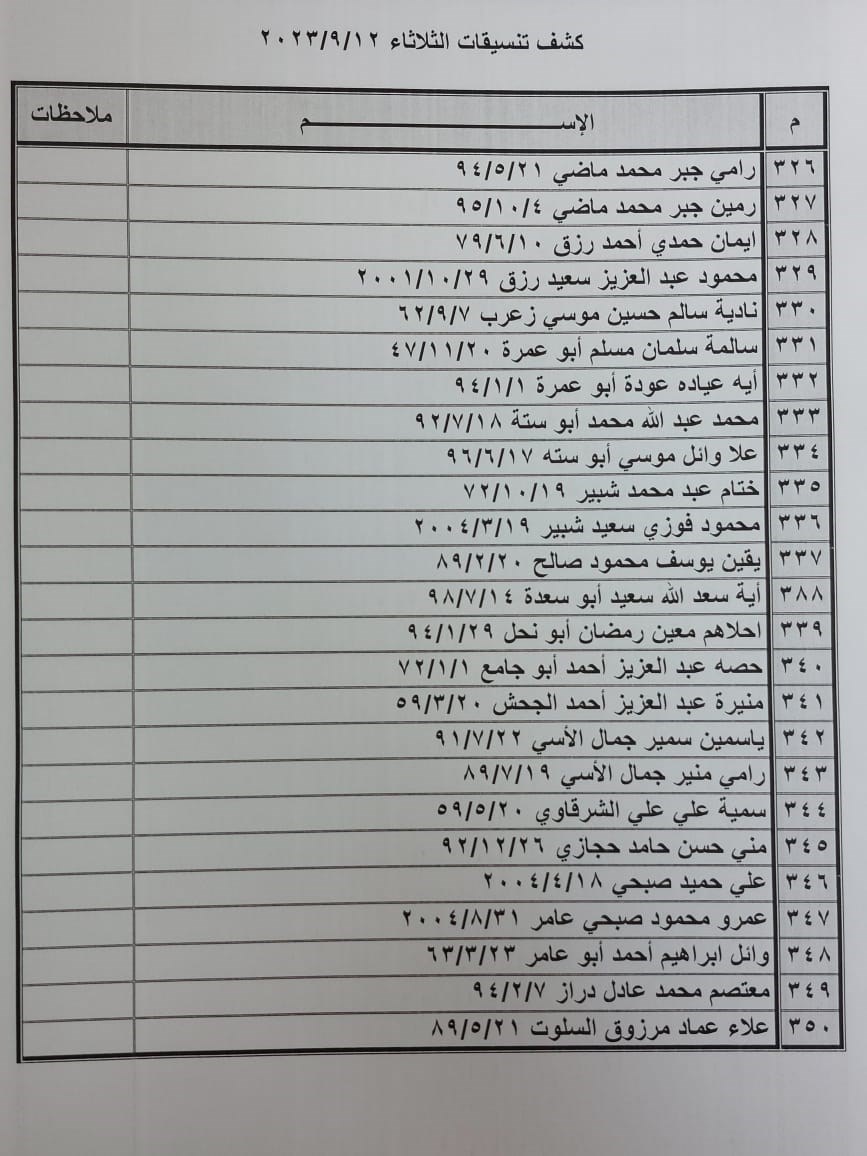 كشف تنسيقات الثلاثاء ٢٠٢٣/٩/١٢
م الإســـــــــــــــــــــــــم ملاحظات
٣٢٦ رامي جبر محمد ماضي ٩٤/٥/٢١
٣٢٧ رمين جبر محمد ماضي ٩٥/١٠/٤
٣٢٨ ايمان حمدي أحمد رزق ٧٩/٦/١٠
٣٢٩ محمود عبد العزيز سعيد رزق ٢٠٠١/١٠/٢٩
٣٣٠ نادية سالم حسين موسي زعرب ٦٢/٩/٧
٣٣١ سالمة سلمان مسلم أبو عمرة ٤٧/١١/٢٠
٣٣٢ أيه عياده عودة أبو عمرة ٩٤/١/١
٣٣٣ محمد عبد الله محمد أبو ستة ٩٢/٧/١٨
٣٣٤ علا وائل موسي أبو سته ٩٦/٦/١٧
٣٣٥ ختام عبد محمد شبير ٧٢/١٠/١٩
٣٣٦ محمود فوزي سعيد شبير ٢٠٠٤/٣/١٩
٣٣٧ يقين يوسف محمود صالح ٨٩/٢/٢٠
٣٨٨ أية سعد الله سعيد أبو سعدة ٩٨/٧/١٤
٣٣٩ احلاهم معين رمضان أبو نحل ٩٤/١/٢٩
٣٤٠ حصه عبد العزيز أحمد أبو جامع ٧٢/١/١
٣٤١ منيرة عبد العزيز أحمد الجحش ٥٩/٣/٢٠
٣٤٢ ياسمين سمير جمال الأسي ٩١/٧/٢٢
٣٤٣ رامي منير جمال الأسي ٨٩/٧/١٩
٣٤٤ سمية علي علي الشرقاوي ٥٩/٥/٢٠
٣٤٥ مني حسن حامد حجازي ٩٢/١٢/٢٦
٣٤٦ علي حميد صبحي ٢٠٠٤/٤/١٨
٣٤٧ عمرو محمود صبحي عامر ٢٠٠٤/٨/٣١
٣٤٨ وائل ابراهيم أحمد أبو عامر ٦٣/٣/٢٣
٣٤٩ معتصم محمد عادل دراز ٩٤/٢/٧
٣٥٠ علاء عماد مرزوق السلوت ٨٩/٥/٢١